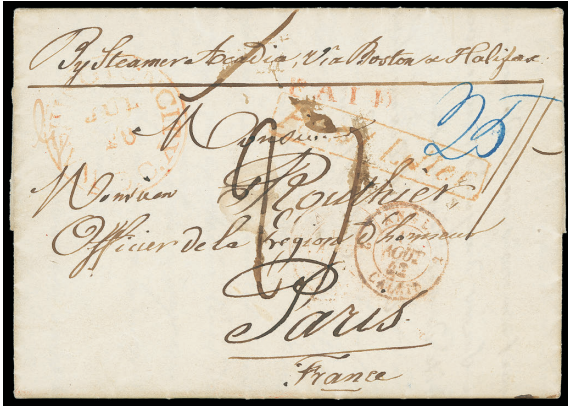 By Steamer Acadia, via Boston & Halifax
PAID
25
Monsieur
Monsieur Routhier
Officier de la Legion d'honneur
27
AOUT
42
CALAIS
2
Paris
France